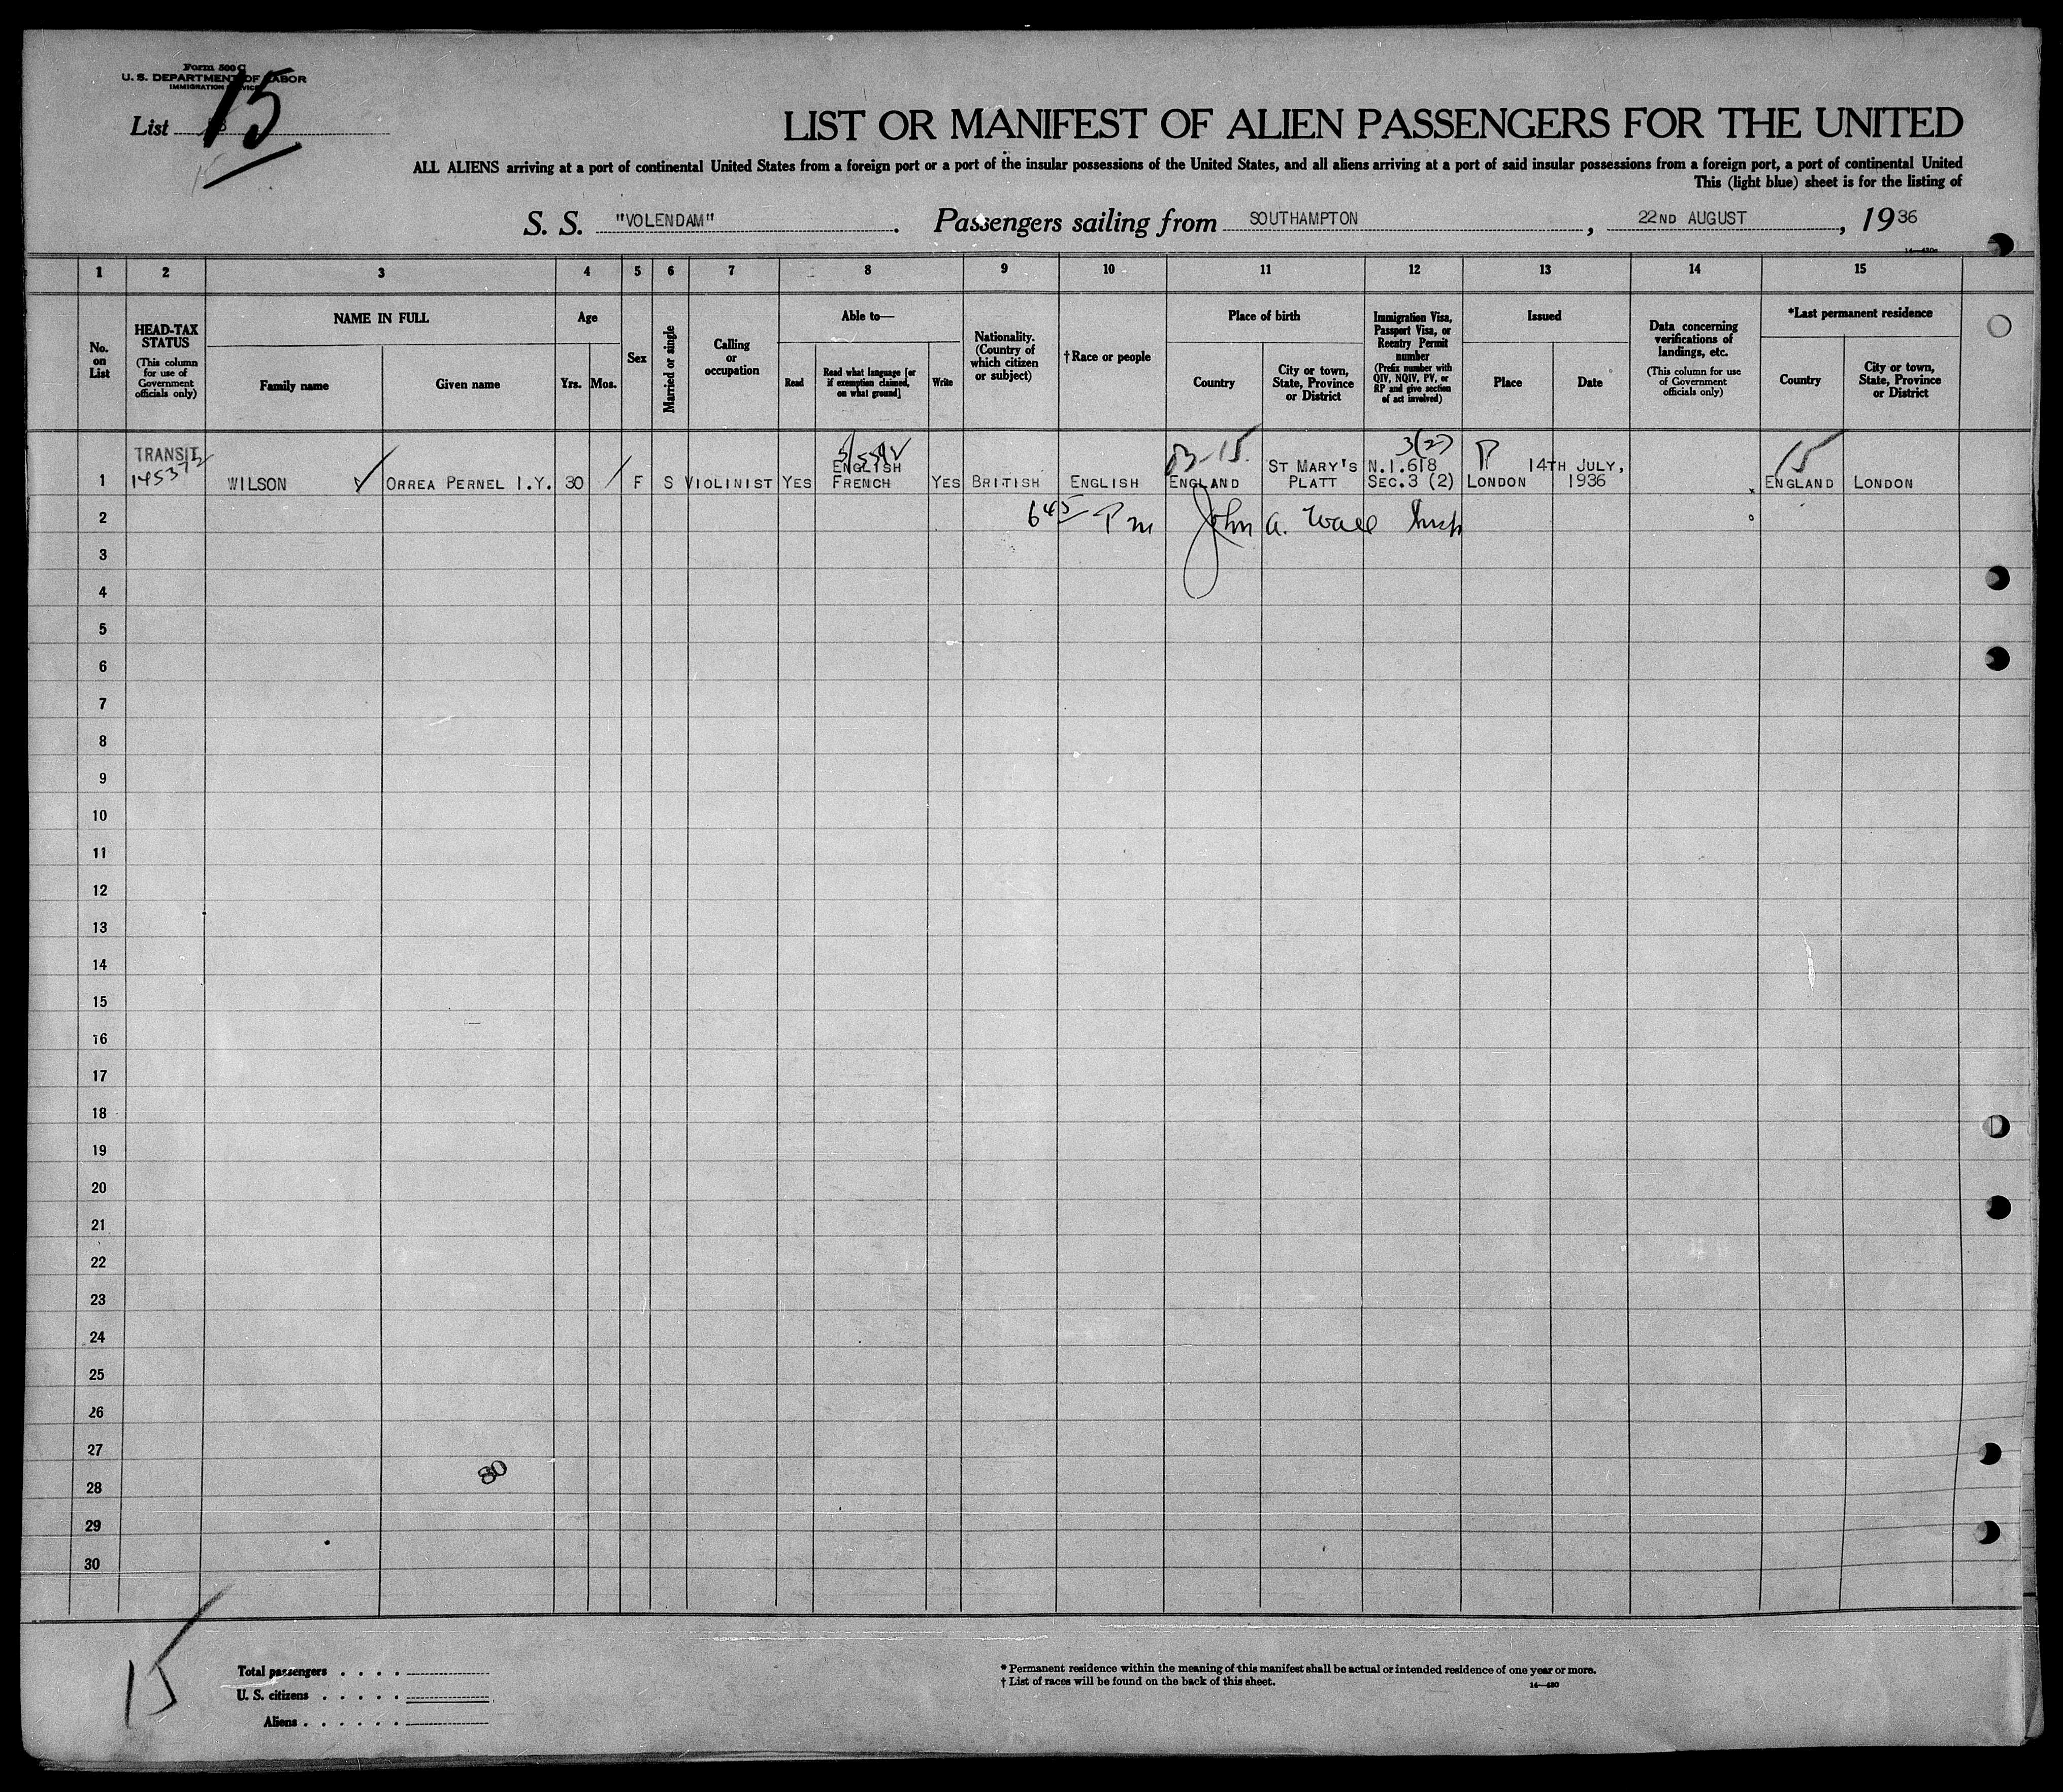 Form 500 C
U. S. DEPARTMENT OF LABOR
IMMIGRATION SERVICE
List 15
LIST OR MANIFEST OF ALIEN PASSENGERS FOR THE UNITED
ALL ALIENS arriving at a port of continental United States from a foreign port or a port of the insular possessions of the United States, and all aliens arriving at a port of said insular possessions from a foreign port, a port of continental United
This (light blue) sheet is for the listing of
S. S. "VOLENDAM". Passengers sailing from SOUTHAMPTON, 22ND AUGUST, 1936
1 2 3 4 5 6 7 8 9 10 11 12 13 14 15
No. on List
HEAD-TAX STATUS
(This column for use of Government officials only)
NAME IN FULL
Family name
Given name
Age
Yrs. Mos.
Sex
Married or single
Calling or occupation
Able to—
Read
Read what language [or if exemption claimed, on what ground]
Write
Nationality. (Country of which citizen or subject)
†Race or people
Place of birth
Country
City or town, State, Province or District
Immigration Visa, Passport Visa, or Reentry Permit number
(Prefix number with QIV, NQIV, PV, or RP and give section of act involved)
Issued
Place
Date
Data concerning verifications of landings, etc.
(This column for use of Government officials only)
*Last permanent residence
Country
City or town, State, Province or District
TRANSIT 3(2) P 15
1 WILSON ORREA PERNEL I.Y. 30 F S VIOLINIST YES ENGLISH FRENCH YES BRITISH ENGLISH ENGLAND ST MARY'S PLATT N.I.618 SEC.3 (2) LONDON 14TH JULY, 1936 ENGLAND LONDON
2 6 45 Pm John A. Wall Insp
3
4
5
6
7
8
9
10
11
12
13
14
15
16
17
18
19
20
21
22
23
24
25
26
27
80
28
29
30
15
Total passengers . . . .
U. S. citizens . . . . .
Aliens . . . . . .
* Permanent residence within the meaning of this manifest shall be actual or intended residence of one year or more.
† List of races will be found on the back of this sheet.
14—430